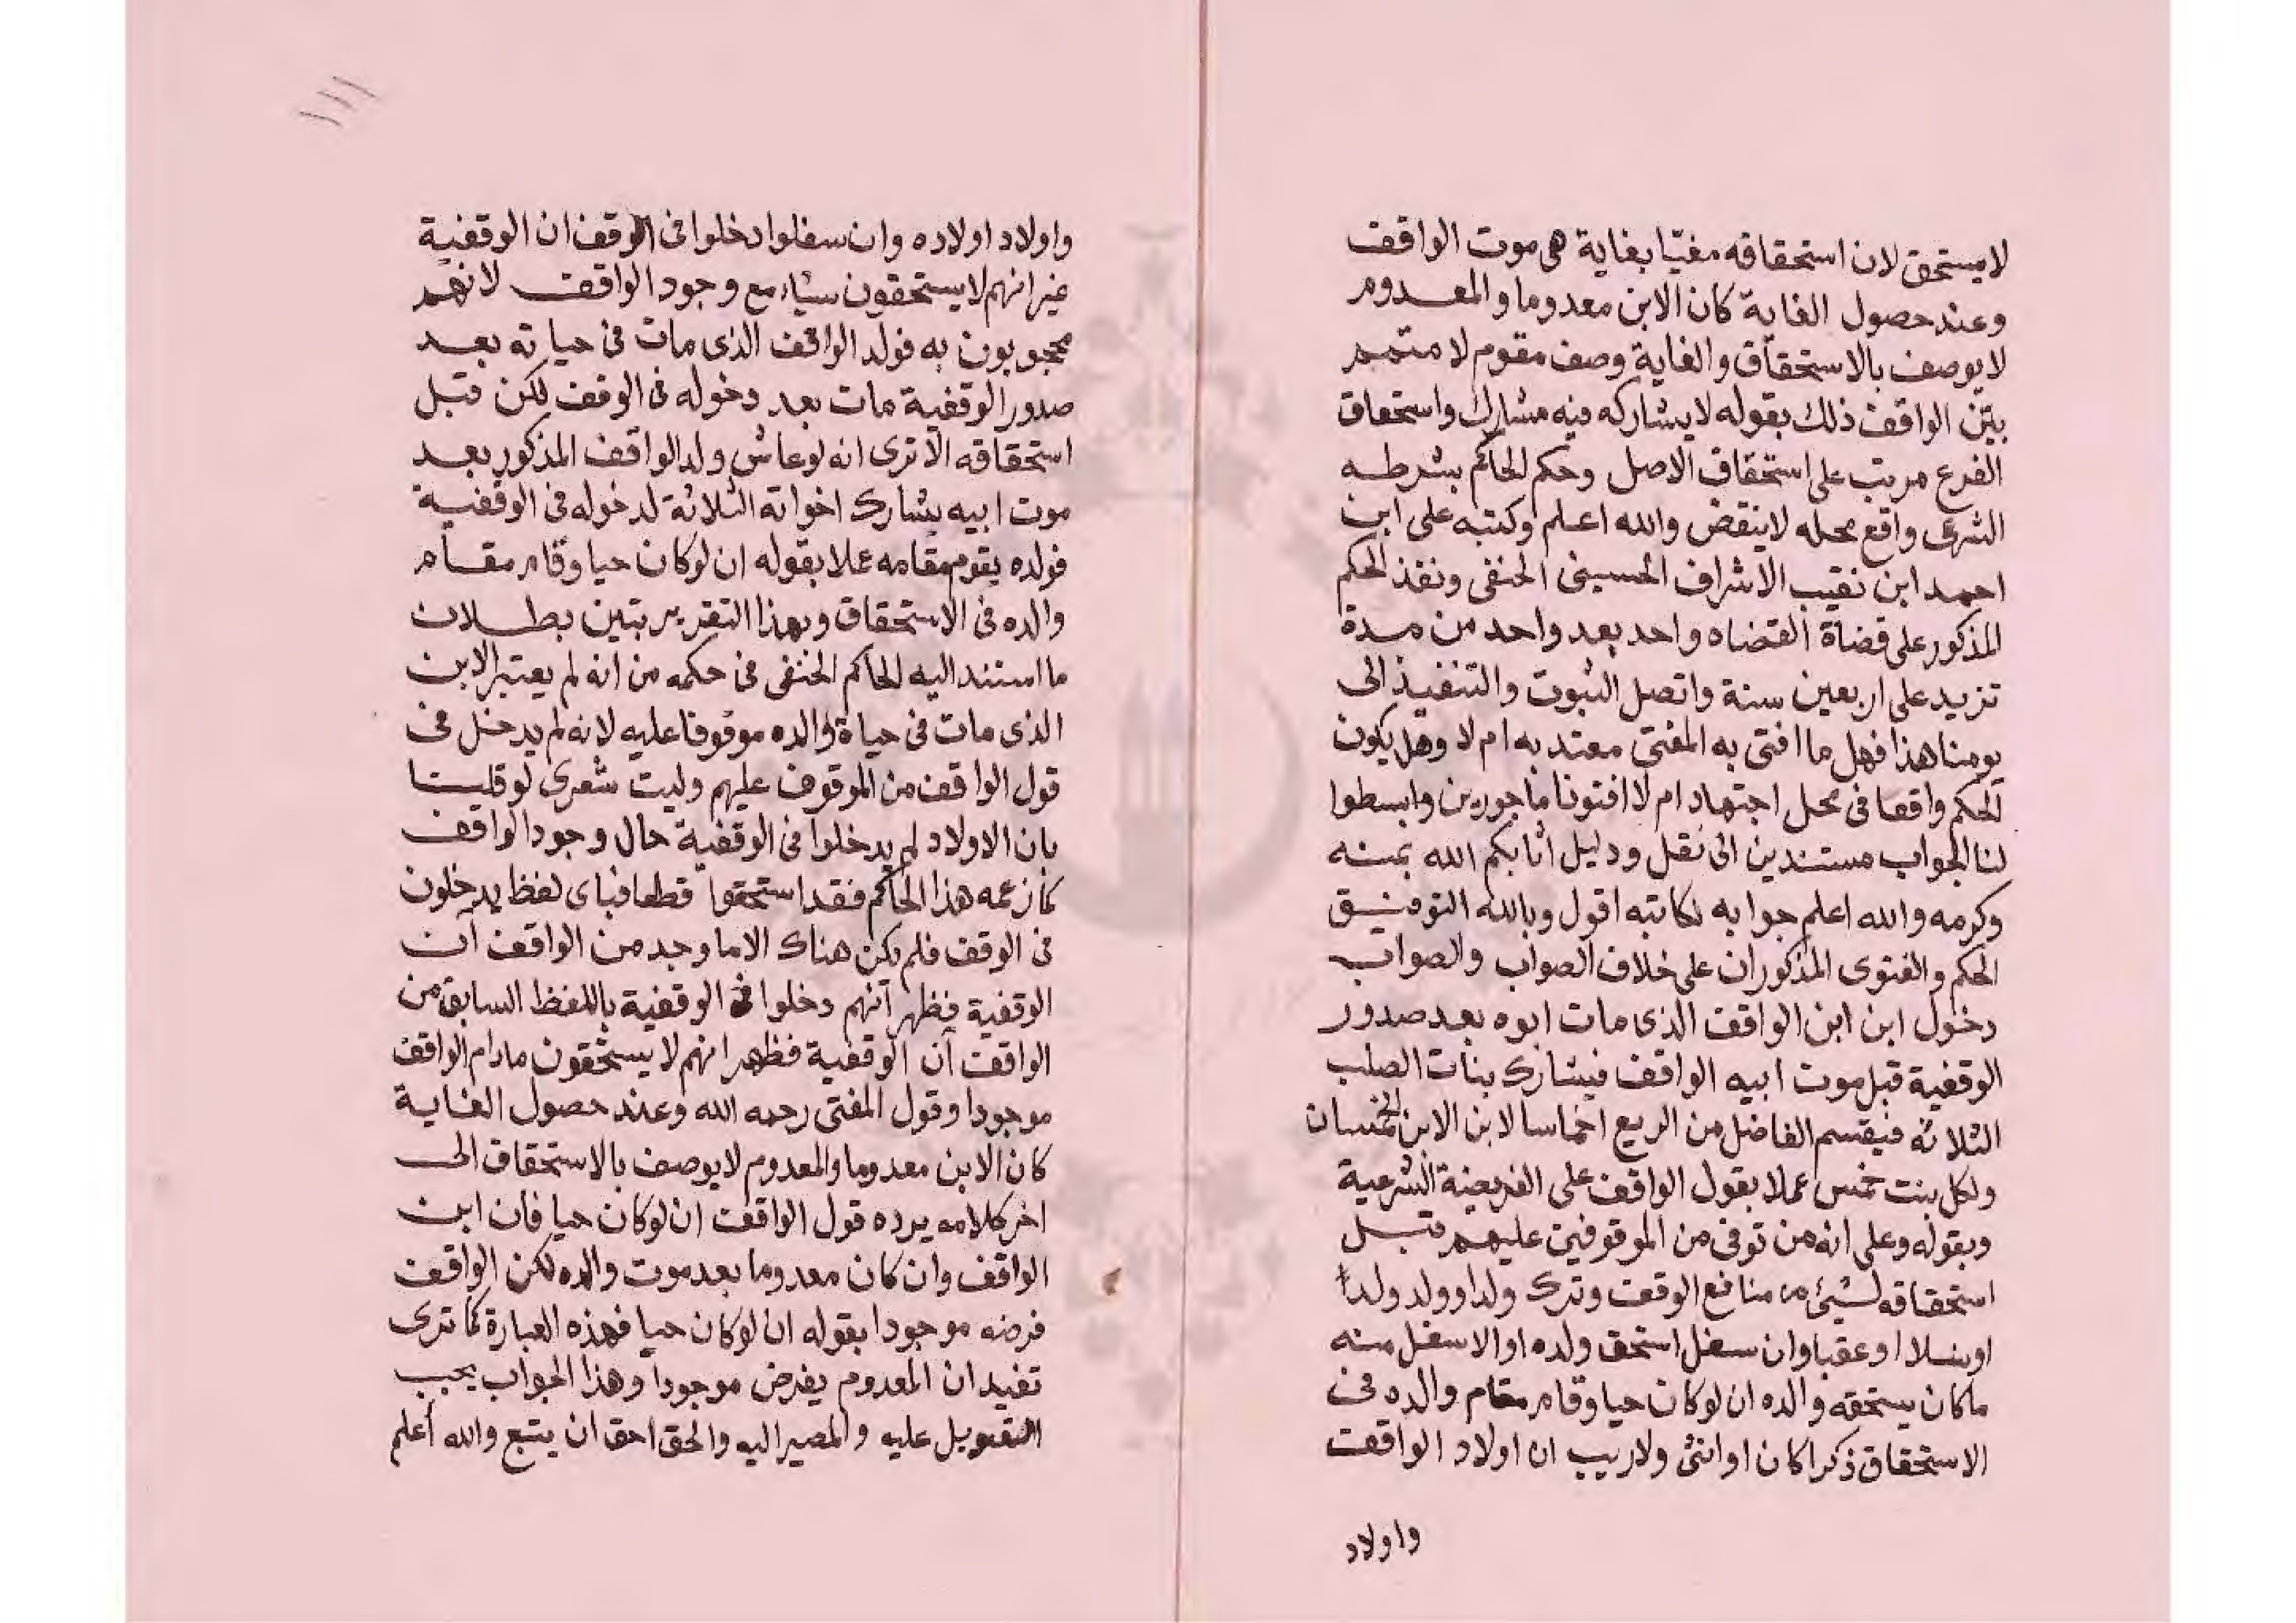 لا يستحق لان استحقاقه مغيّا بغاية هى موت الواقف
وعند حصول الغاية كان الابن معدوما والمعدوم
لا يوصف بالاستحقاق والغاية وصف مقوم لا متمم
بيّن الواقف ذلك بقوله لا يشاركه فيه مشارك واستحقاق
الفرع مرتب على استحقاق الاصل وحكم الحاكم بشرطه
الشرعى واقع محله لا ينقض والله اعلم وكتبه على ابن
احمد ابن نقيب الاشراف الحسينى الحنفى ونفذ الحكم
المذكور على قضاة القضاه واحد بعد واحد من مدة
تزيد على اربعين سنة واتصل الثبوت والتنفيذ الى
يومنا هذا فهل ما افتى به المفتى معتد به ام لا وهل يكون
الحكم واقعا فى محل اجتهاد ام لا افتونا ماجورين وابسطوا
لنا الجواب مستندين الى نقل ودليل اثابكم الله بمنه
وكرمه والله اعلم جوابه لكاتبه اقول وبالله التوفيق
الحكم والفتوى المذكوران على خلاف الصواب والصواب
دخول ابن ابن الواقف الذى مات ابوه بعد صدور
الوقفية قبل موت ابيه الواقف فيشارك بنات الصلب
الثلاثه فيقسم الفاضل من الريع اخماسا لابن الابن الخمسان
ولكل بنت خمس عملا بقول الواقف على الفريضة الشرعية
وبقوله وعلى انه من توفى من الموقوفين عليهم قبل
استحقاقه لشيئ من منافع الوقف وترك ولدا او ولد ولد
او نسلا او عقبا وان سفل استحق ولده او الاسفل منه
ما كان يستحقه والده ان لو كان حيا وقام مقام والده فى
الاستحقاق ذكرا كان او انثى ولا ريب ان اولاد الواقف
واولاد
١١١
واولاد اولاده وان سفلوا دخلوا فى الوقف ان الوقفية
غير انهم لا يستحقون شياء مع وجود الواقف لانهم
محجوبون به فولد الواقف الذى مات فى حياته بعد
صدور الوقفية مات بعد دخوله فى الوقف لكن قبل
استحقاقه الا ترى انه لو عاش ولد الواقف المذكور بعد
موت ابيه يشارك اخواته الثلاثة لدخوله فى الوقفية
فولده يقوم مقامه عملا بقوله ان لو كان حيا وقام مقام
والده فى الاستحقاق وبهذا التقرير تبين بطلان
ما استند اليه الحاكم الحنفى فى حكمه من انه لم يعتبر الابن
الذى مات فى حياة والده موقوفا عليه لانه لم يدخل فى
قول الواقف من الموقوف عليهم وليت شعرى لو قلينا
بان الاولاد لم يدخلوا فى الوقفية حال وجود الواقف
كما زعمه هذا الحاكم فقد استحقوا قطعا فباى لفظ يدخلون
فى الوقف فلم يكن هناك الا ما وجد من الواقف آن
الوقفية فظهر انهم دخلوا فى الوقفية باللفظ السابق من
الواقف آن الوقفية فظهر انهم لا يستحقون مادام الواقف
موجودا وقول المفتى رحمه الله وعند حصول الغاية
كان الابن معدوما والمعدوم لا يوصف بالاستحقاق الى
اخر كلامه يرده قول الواقف ان لو كان حيا فان ابن
الواقف وان كان معدوما بعد موت والده لكن الواقف
فرضه موجودا بقوله ان لو كان حيا فهذه العبارة كما ترى
تفيد ان المعدوم يفرض موجودا وهذا الجواب يجب
التعويل عليه والمصير اليه والحق احق ان يتبع والله أعلم